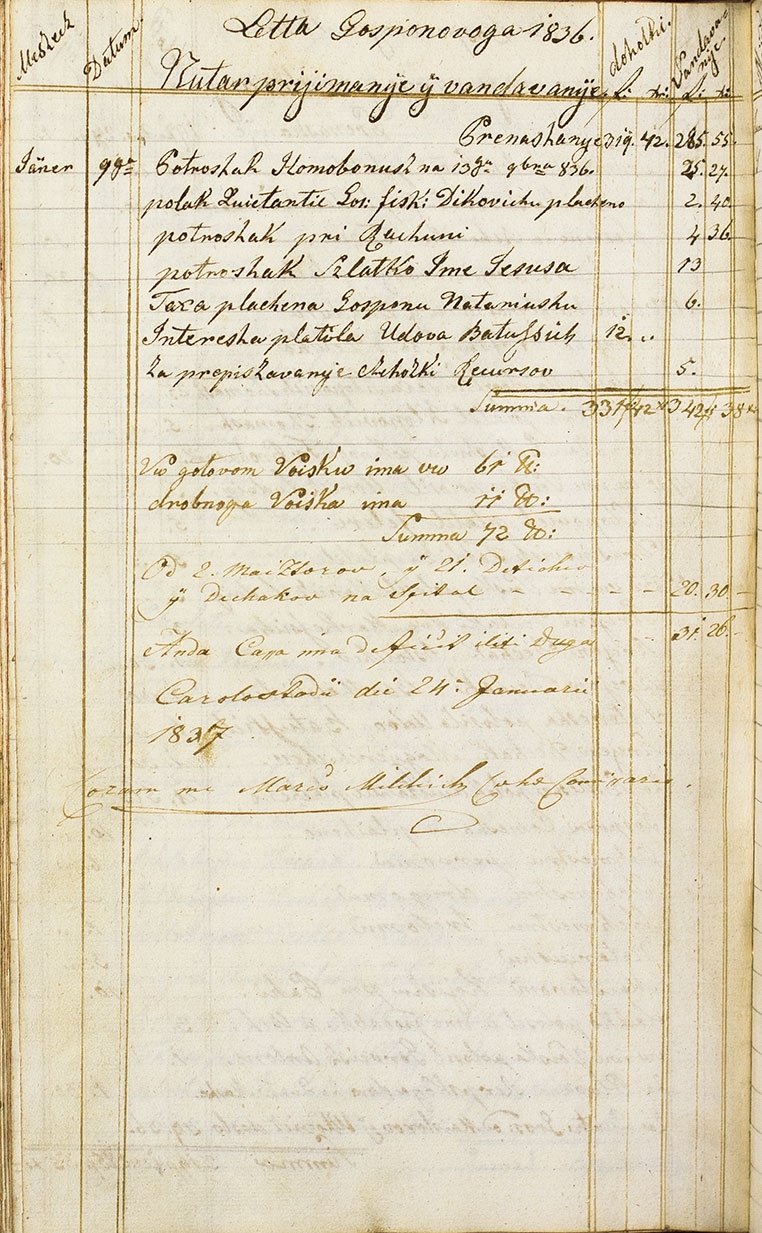 Meszecz Datum. Letta Gosponovoga 1836. dohotki. Vandava-
nye.
Nutarprijimanye ÿ vandavanye. f: xr: f: xr:
Prenashanye 319. 42. 285. 55.
Jäner 9ga Potroshak Homobonusk na 13ga 9bra 836. 25. 27.
polak Quietantie Gos: fisk: Dikovichu placheno 2. 40.
potroshak pri Rachuni 4 36.
potroshak Szlatko Ime Jesusa 13
Taxa plachena Gosponu Notariusku 6.
Interesha platila Udova Batussich 12. „
Za prepiszavanye Recursov 5.
Summa. 331 f 42 xr 342 f 38 xr
Vu gotovom Voisku ima vu 61 ℔:
drobnoga Voiska ima 11 ℔:
Summa 72 ℔:
Od 2. Maisztorov, ÿ 21. Detichev
ÿ Dechakov na Spital - - - - - 20. 30 -
Anda Cassa ima deficit iliti Duga - - 31. 26. -
Carolostadii die 24a Januarii
1837
Coram me